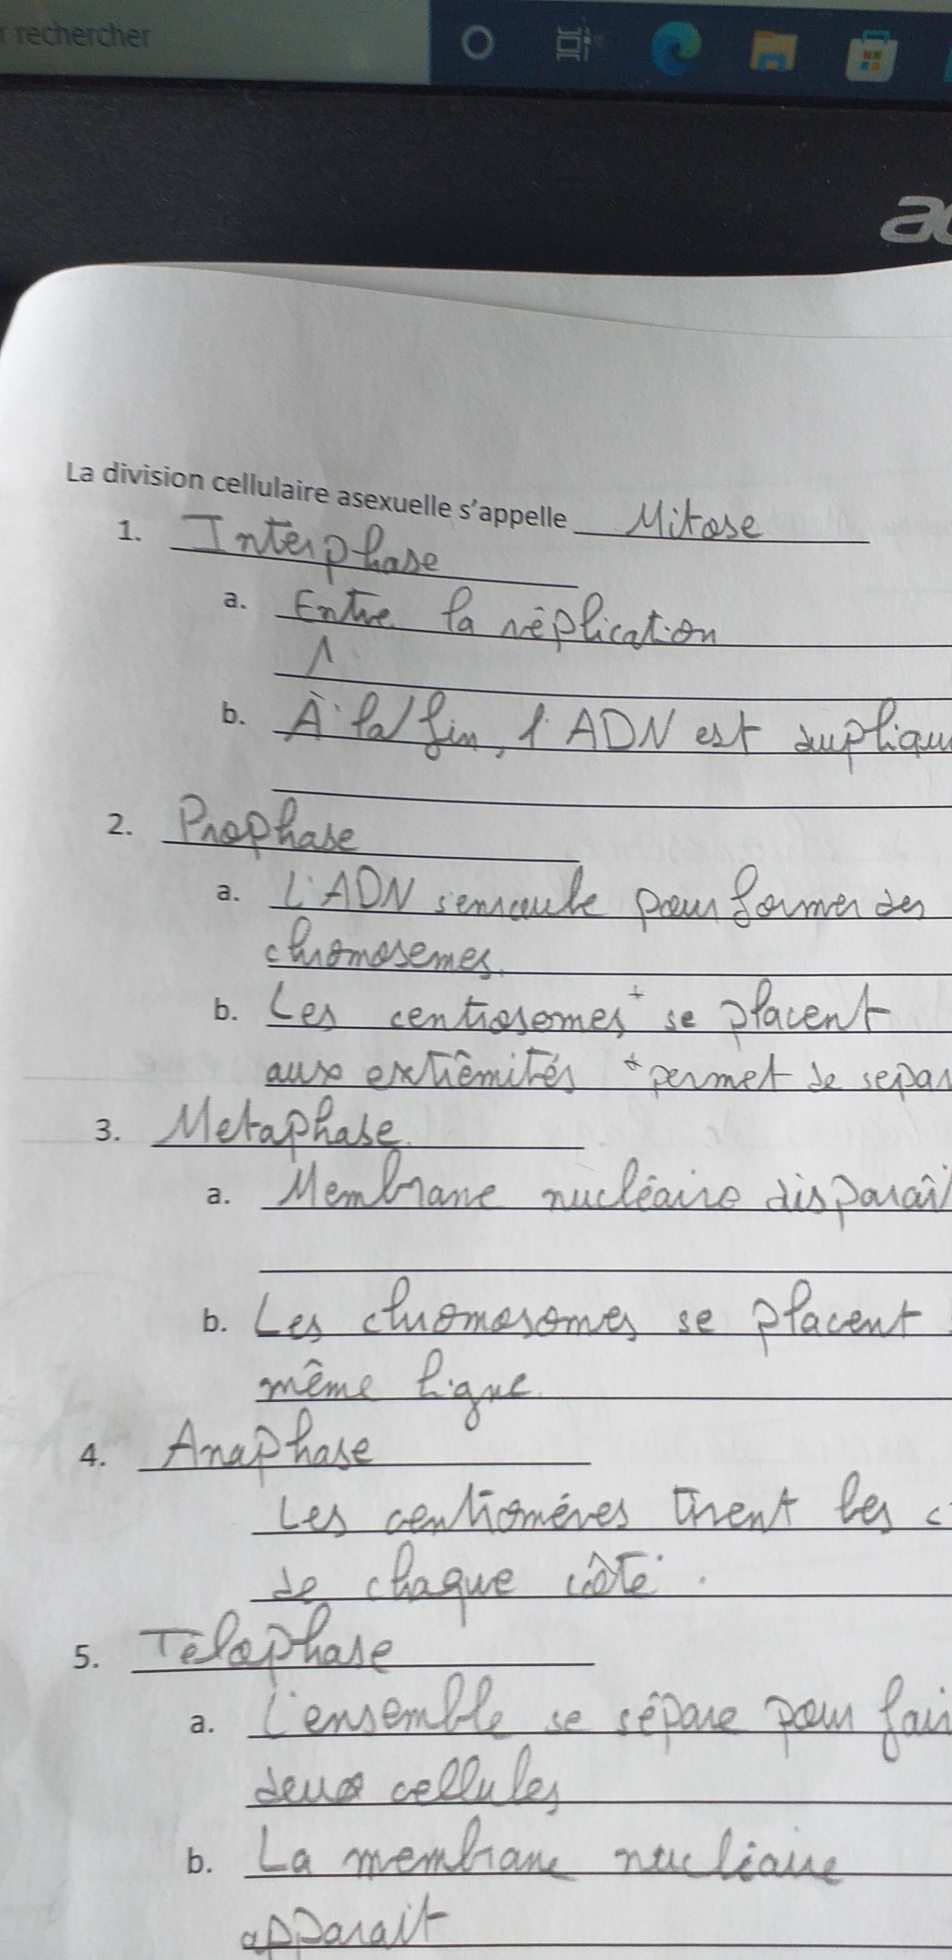 rechercher
La division cellulaire asexuelle s'appelle Mitose
1. Interphase
a. Entre la réplication
b. À la fin, l'ADN est
2. Prophase
a. L'ADN s'enroule pour former des
chromosemes.
b. Les centrosomes* se placent
aux extrêmités *permet de sépar
3. Metaphase.
a. Membrane nucléaire disparaî
b. Les chromosomes se placent
même ligne.
4. Anaphase
Les centromères tirent les c
de chaque côté.
5. Télophase
a. L'ensemble se sépare pour fair
deux cellules
b. La membrane nucléaire
apparait